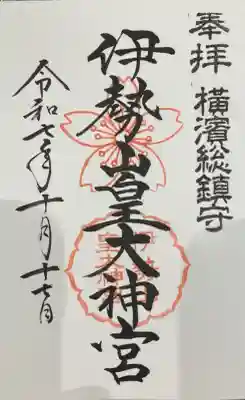 奉拝 横濱総鎮守
伊勢山皇大神宮
令和七年十月十七日